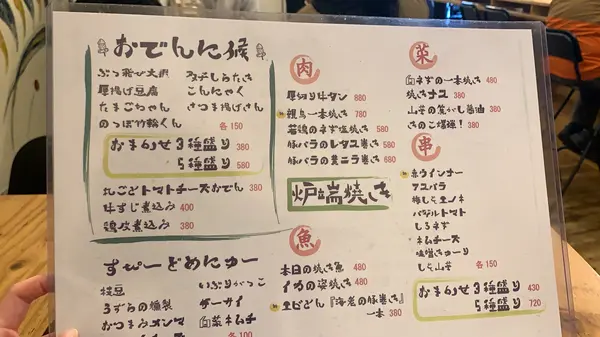 おでんに候
ぶっ飛び大根
厚揚げ豆腐
たまごちゃん
のっぽ竹輪くん
こんにゃく
さつま揚げさん
各150
おまかせ3種盛り 380
5種盛り 580
丸ごとトマトチーズおでん 380
牛すじ煮込み 400
鶏皮煮込み 380
すぴーどめにゅー
枝豆
うずらの燻製
おつまみメンマ
いぶりがっこ
ザーサイ
白菜キムチ
各100
肉
厚切り牛タン 880
親鳥一本焼き 780
若鶏のネギ塩焼き 580
豚バラのレタス巻き 380
豚バラの黄ニラ巻き 380
炉端焼き
魚
本日の焼き魚 480
イカの姿焼き 480
『海老の豚巻き』
一本 380
菜
白ネギの一本焼き 480
焼きナス 380
山芋の焦がし醤油 480
きのこ爆弾! 380
串
赤ウインナー
アスパラ
梅しそエノキ
パクチートマト
しろネギ
ネムチーズ
味噌きゅーり
しそ山芋
各150
おまかせ3種盛り 430
5種盛り 720